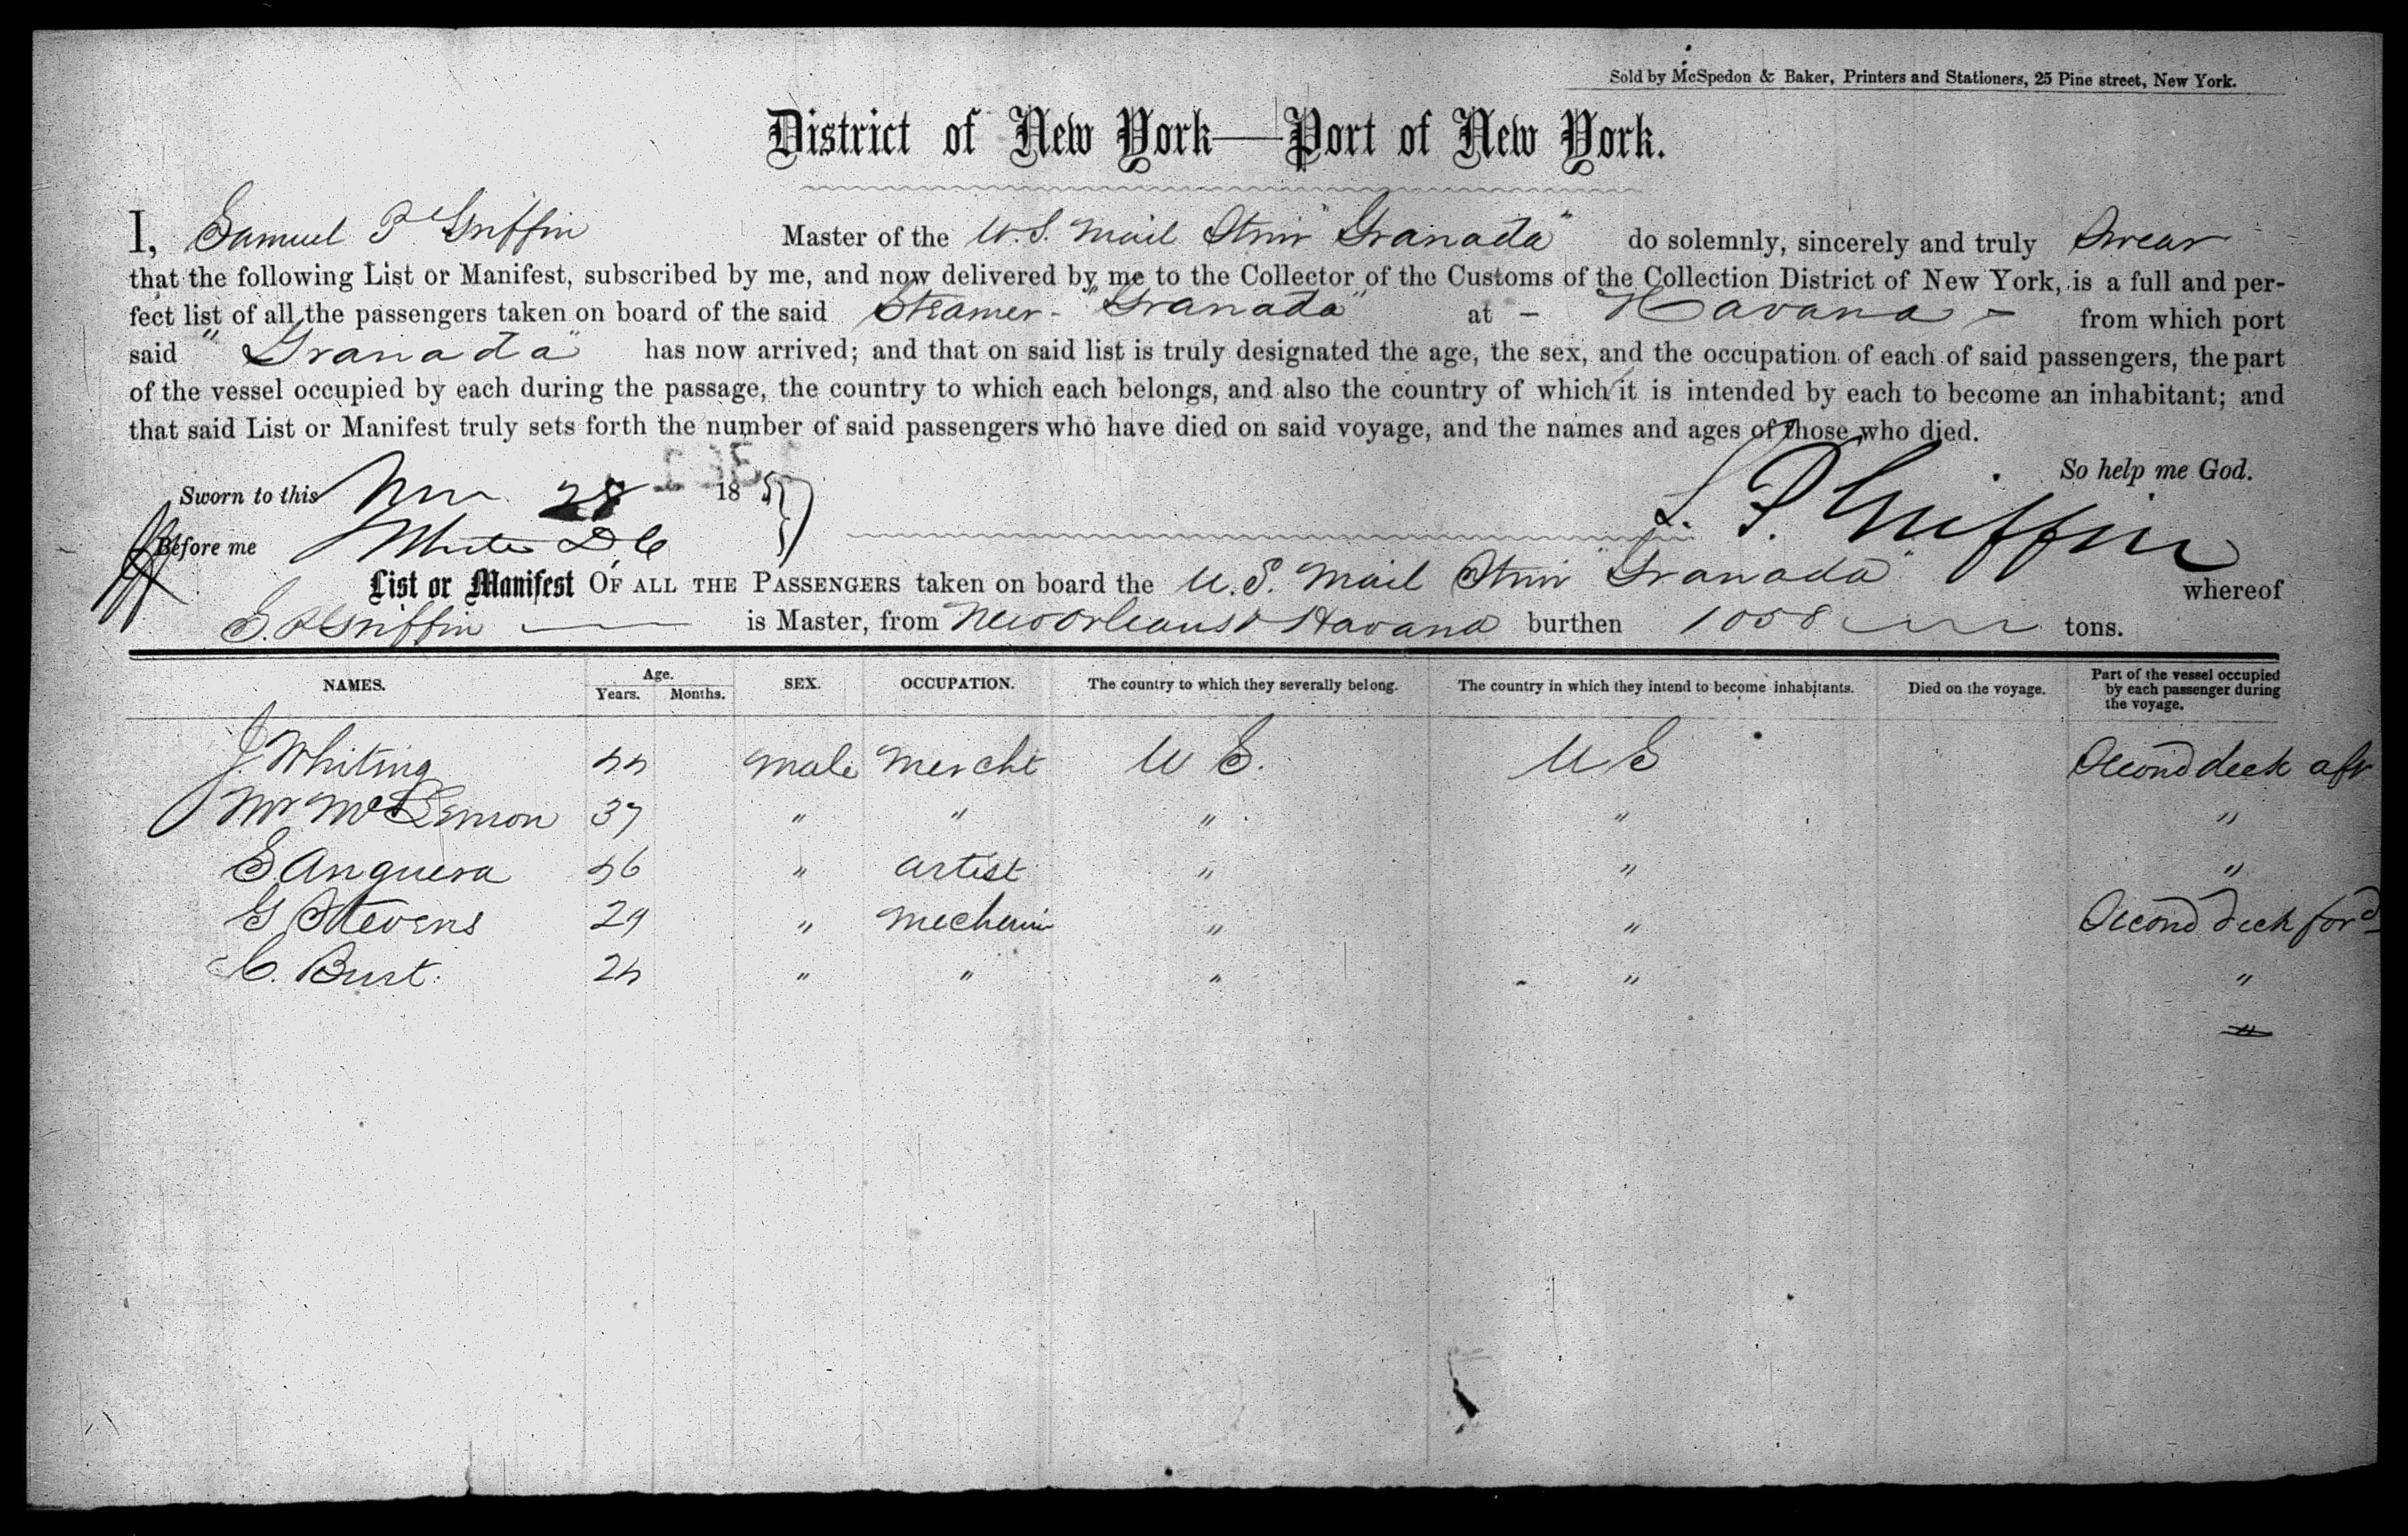 Sold by McSpedon & Baker, Printers and Stationers, 25 Pine street, New York.
District of New York—Port of New York.
I, Samuel P Griffin Master of the U.S. Mail Stmr "Granada" do solemnly, sincerely and truly Swear
that the following List or Manifest, subscribed by me, and now delivered by me to the Collector of the Customs of the Collection District of New York, is a full and per-
fect list of all the passengers taken on board of the said Steamer - "Granada" at - Havana - from which port
said "Granada" has now arrived; and that on said list is truly designated the age, the sex, and the occupation of each of said passengers, the part
of the vessel occupied by each during the passage, the country to which each belongs, and also the country of which it is intended by each to become an inhabitant; and
that said List or Manifest truly sets forth the number of said passengers who have died on said voyage, and the names and ages of those who died.
So help me God.
Sworn to this Nov 28 18
S. P. Griffin
Before me
List or Manifest OF ALL THE PASSENGERS taken on board the U.S. Mail Stmr "Granada" whereof
S. P Griffin is Master, from New Orleans & Havana burthen 1058 tons.
NAMES. Age. Years. Months. SEX. OCCUPATION. The country to which they severally belong. The country in which they intend to become inhabitants. Died on the voyage. Part of the vessel occupied by each passenger during the voyage.
J. Whiting male mercht U S. U S Second deck aft
Mr McLemon 37 " " " " "
S. Anguera 56 " artist " " "
G Stevens 29 " " " Second deck ford
C. Burt. 25 " " " " "